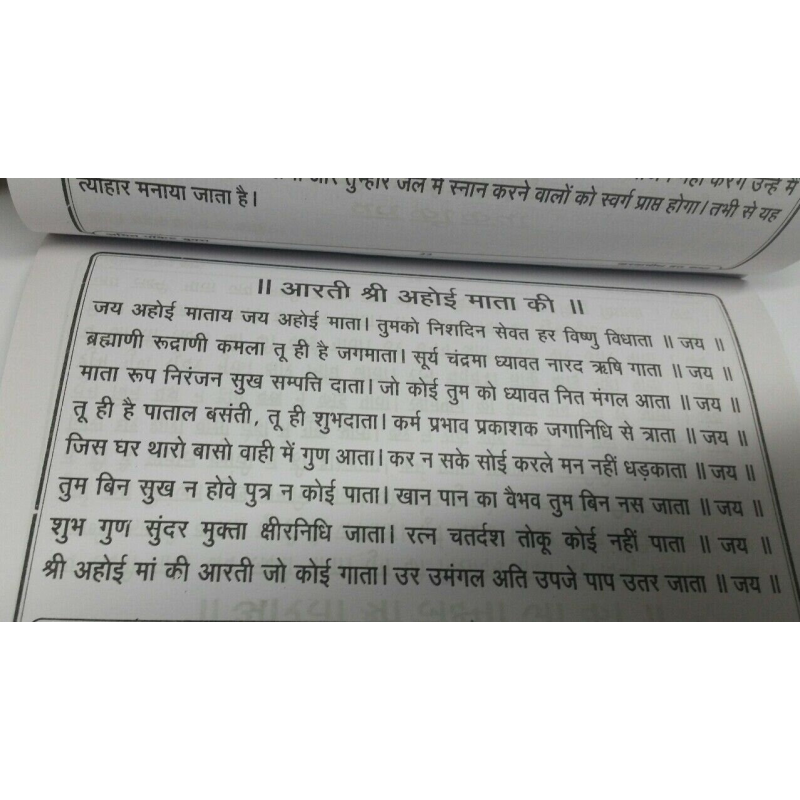 और तुम्हारे जल में स्नान करने वालों को स्वर्ग प्राप्त होगा। तभी से यह
त्योहार मनाया जाता है।
॥ आरती श्री अहोई माता की ॥
जय अहोई माताय जय अहोई माता। तुमको निशदिन सेवत हर विष्णु विधाता ॥ जय ॥
ब्रह्माणी रूद्राणी कमला तू ही है जगमाता। सूर्य चंद्रमा ध्यावत नारद ऋषि गाता ॥ जय ॥
माता रूप निरंजन सुख सम्पत्ति दाता। जो कोई तुम को ध्यावत नित मंगल आता ॥ जय ॥
तू ही है पाताल बसंती, तू ही शुभदाता। कर्म प्रभाव प्रकाशक जगानिधि से त्राता ॥ जय ॥
जिस घर थारो बासो वाही में गुण आता। कर न सके सोई करले मन नहीं धड़काता ॥ जय ॥
तुम बिन सुख न होवे पुत्र न कोई पाता। खान पान का वैभव तुम बिन नस जाता ॥ जय ॥
शुभ गुण सुंदर मुक्ता क्षीरनिधि जाता। रत्न चतर्दश तोकू कोई नहीं पाता ॥ जय ॥
श्री अहोई मां की आरती जो कोई गाता। उर उमंगल अति उपजे पाप उतर जाता ॥ जय ॥